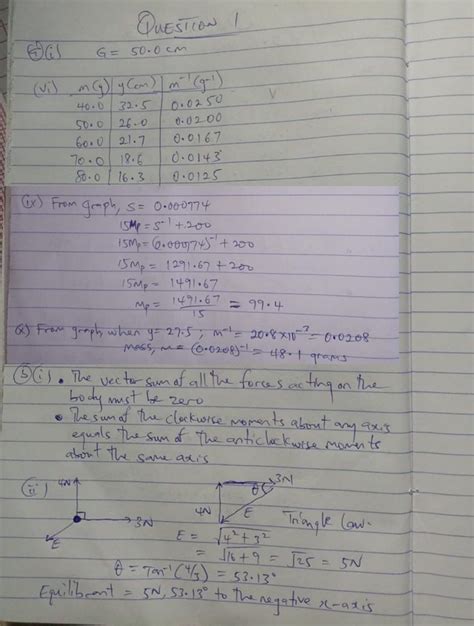 QUESTION 1
(i) G = 50.0 cm
(vi) m(g) y(cm) m⁻¹(g⁻¹)
40.0 32.5 0.0250
50.0 26.0 0.0200
60.0 21.7 0.0167
70.0 18.6 0.0143
80.0 16.3 0.0125
(ix) From graph, S = 0.000774
15Mp = S⁻¹ + 200
15Mp = (0.000774)⁻¹ + 200
15Mp = 1291.67 + 200
15Mp = 1491.67
Mp = 1491.67/15 = 99.4
(x) From graph, when y = 27.5; m⁻¹ = 20.8 × 10⁻³ = 0.0208
mass, m = (0.0208)⁻¹ = 48.1 grams
(b)(i) • The vector sum of all the forces acting on the
body must be zero
• The sum of the clockwise moments about any axis
equals the sum of the anticlockwise moments
about the same axis
(ii)
4N
3N
E
3N
θ
4N
E
Triangle Law.
E = √4² + 3²
= √16 + 9 = √25 = 5N
θ = Tan⁻¹(4/3) = 53.13°
Equilibrant = 5N, 53.13° to the negative x-axis